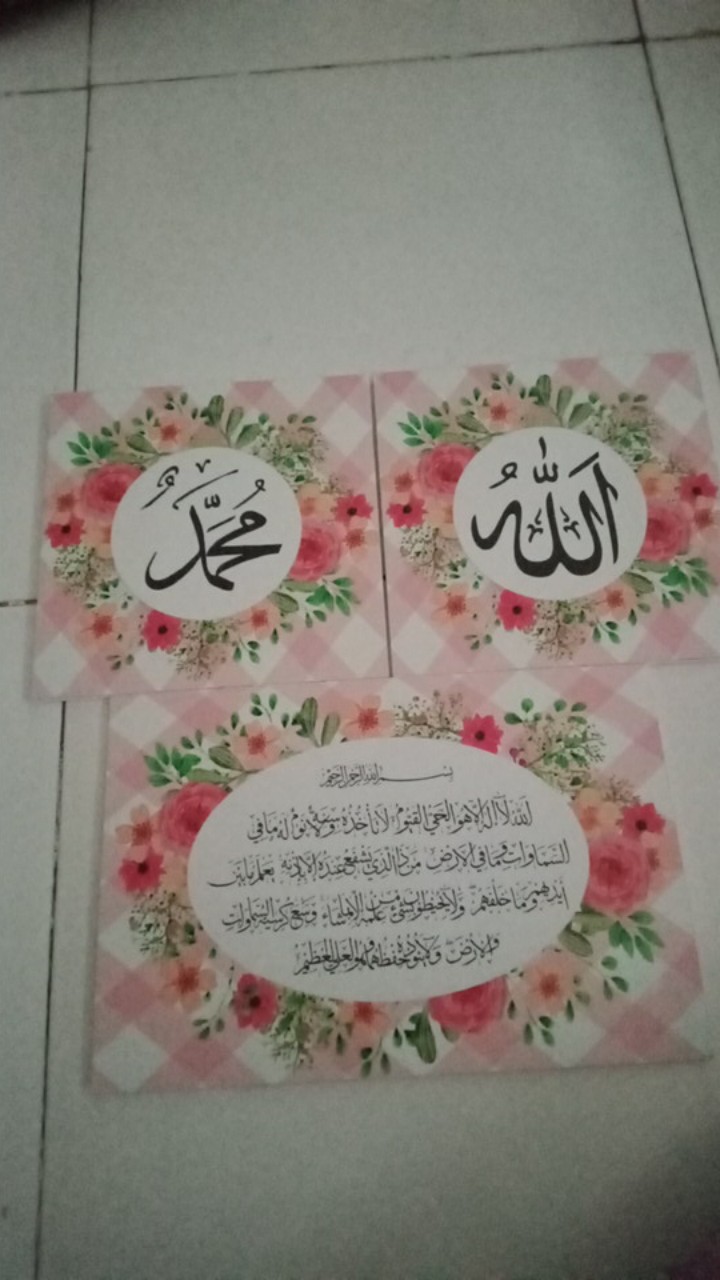 الله
محمد
بسم الله الرحمن الرحيم
الله لا اله الا هو الحي القيوم لا تأخذه سنة ولا نوم له ما في
السماوات وما في الارض من ذا الذي يشفع عنده الا باذنه يعلم ما بين
أيديهم وما خلفهم ولا يحيطون بشيء من علمه الا بما شاء وسع كرسيه السماوات
والارض ولا يئوده حفظهما وهو العلي العظيم